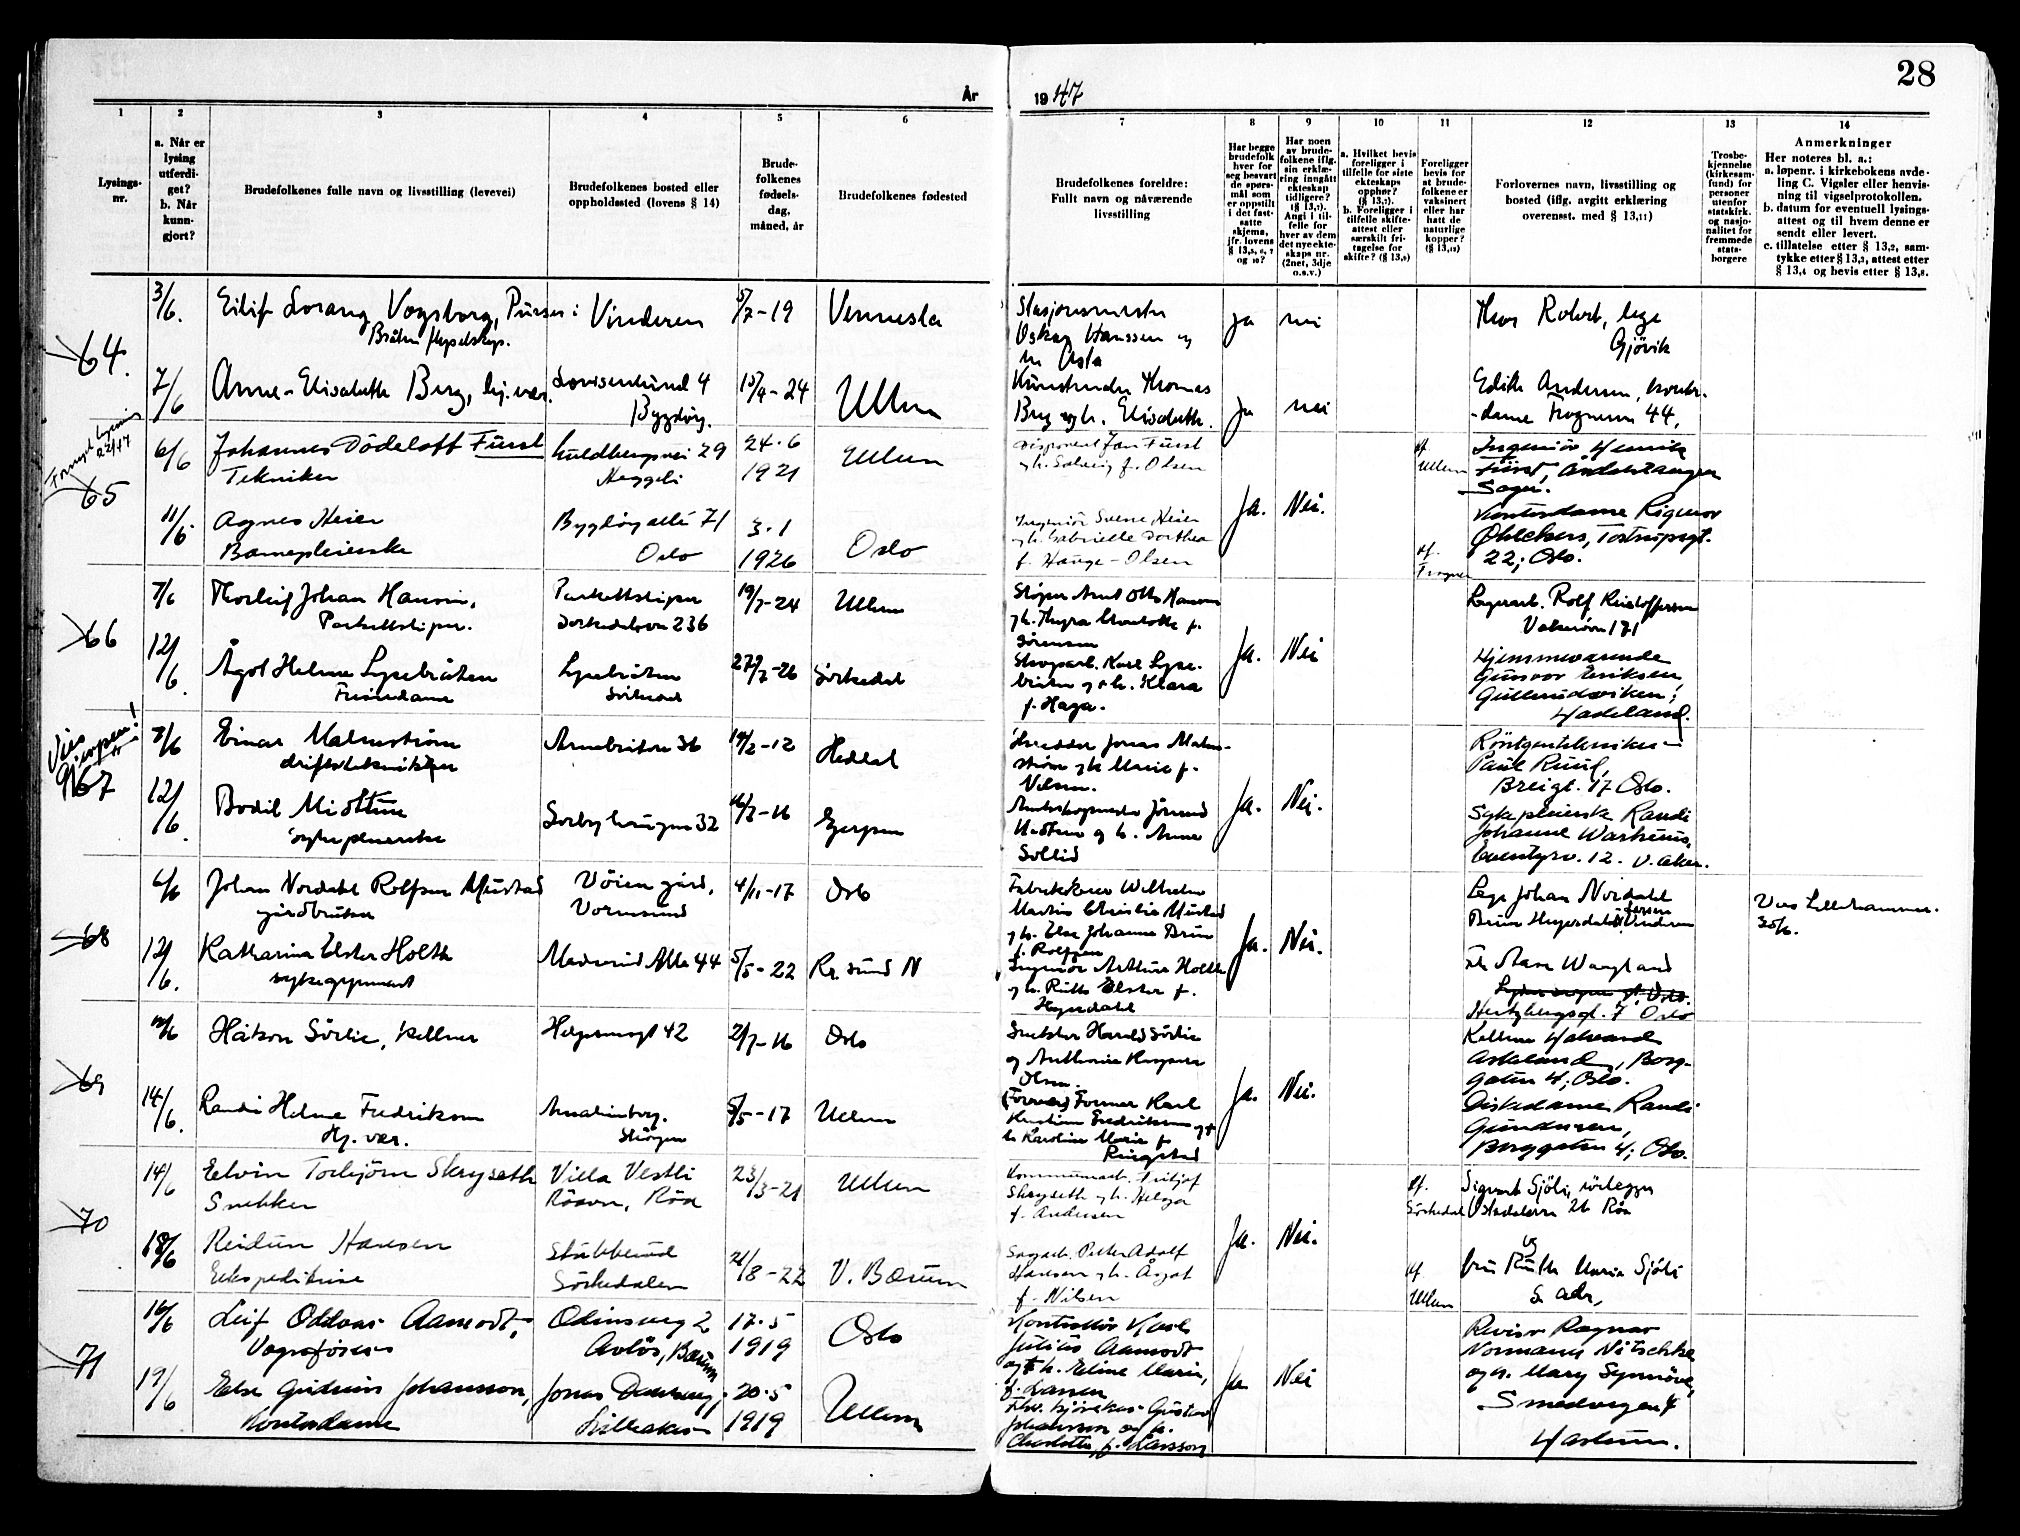 28
År
19 47
1
2
3
4
5
6
7
8
9
10
11
12
13
14
Lysings-
nr.
a. Når er
lysing
utferdi-
get?
b. Når
kunn-
gjort?
Brudefolkenes fulle navn og livsstilling (levevei)
Brudefolkenes bosted eller
oppholdssted (lovens § 14)
Brude-
folkenes
fødsels-
dag,
måned, år
Brudefolkenes fødested
Brudefolkenes foreldre:
Fullt navn og nåværende
livsstilling
Har begge
brudefolk
hver for
seg besvart
de spørs-
mål som
er oppstilt
i det fast-
satte
skjema,
jfr. lovens
§ 13,5, 6, 7
og 10?
Har noen
av brude-
folkene iflg.
sin erklæ-
ring inngått
ekteskap
tidligere?
(§ 13,7).
Angi i til-
felle for
hver av dem
det nye ekte-
skaps nr.
(2net, 3dje
o.s.v.)
a. Hvilket bevis
foreligger i
tilfelle for siste
ekteskaps
opphør?
(§ 13,7).
b. Foreligger i
tilfelle skifte-
attest eller
særskilt fri-
tagelse for
skifte? (§ 13,8)
Foreligger
bevis for
at brude-
folkene er
vaksinert
eller har
hatt de
naturlige
kopper?
(§ 13,12)
Forlovernes navn, livsstilling og
bosted (iflg. avgitt erklæring
overensst. med § 13,11)
Trosbe-
kjennelse
(kirkesam-
fund) for
personer
utenfor
statskirk.
og nasjo-
nalitet for
fremmede
stats-
borgere
Anmerkninger
Her noteres bl. a.:
a. løpenr. i kirkebokens avde-
ling C. Vigsler eller henvis-
ning til vigselprotokollen.
b. datum for eventuell lysings-
attest og til hvem denne er
sendt eller levert.
c. tillatelse etter § 13,2, sam-
tykke etter § 13,3, attest etter
§ 13,4 og bevis etter § 13,8.
64.
3/6.
Eilif Lorang Vogsborg,
Vinderen
5/7-19
Vennesla
Stasjonsmester
Oskar Hanssen og
h. Asta
ja
nei
Thor Robert, lege
Gjøvik
7/6
Anne-Elisabeth Berg, hj.vær.
Lovisenlund 4
Bygdøy.
15/9-24
Ullern
Kunstmaler Thomas
Berg og h. Elisabeth.
ja
nei
Edith Andersen, kontor-
-dame Frogneren 44,
Fornyet lysning
22/
65
6/6
Johannes Dødeloff Fürst
Tekniker
Guldbergsvei 29
Heggeli
24.6
1921
Ullern
Disponent Jan Fürst
og h. Solveig f. Olsen
Ja.
Nei.
af.
Ullern
Ingeniør Henrik
Fürst,
11/6
Agnes Heier
Barnepleierske
Bygdøy allé 71
Oslo
3.1
1926
Oslo
Ingeniør Svene Heier
og h. Gabrielle Dorthea
f. Hauge-Olsen
af.
Frogner
Kontordame Rigmor
Ohlckers, Tostrupsgt.
22; Oslo.
66
7/6
Thorleif Johan Hansen,
Parkettsliper.
Parkettsliper
Sørkedalsvn 236
19/7-24
Ullern
Sliper Arnt Otto Hansen
og h. Thyra Charlotte f.
Sørensen
Ja.
Nei
Lagerarb. Rolf Kristoffersen
171
12/6.
Ågot Helene Lysebråten
Frisørdame
Lysebråten
27/7-26
Sørkedal
Skogarb. Karl Lyse-
bråten og h. Klara
f. Haga.
Hjemmeværende
Gunvor Eriksen,
Gullerudsviken;
Hadeland.
Vies
Gjerpen!
67
7/6
Einar Malmstrøm
driftstekniker
36
14/2-12
Heddal
Jonas Malm-
strøm og h. Marie f.
Nilsen.
Ja.
Nei.
Röntgentekniker
Paul Ruud,
Breigt. 17 Oslo.
12/6.
Bodil Midttun
sykepleierske
Sørbyhaugen 32
16/3-16
Gjerpen
og h. Anna
Sollid
Sykepleierske Randi
Johanne Warhuus,
Eventyrv. 12. V. Aker.
68
6/6
Johan Nordahl Rolfsen Mustad
gårdbruker
Vøien gård,
Vormsund
4/11-17
Oslo
Fabrikkeier Wilhelm
Martin Christian Mustad
og h. Else Johanne Brun
f. Rolfsen
Ja.
Nei.
Lege Johan Nordahl
Brun Heyerdahl Larsen Vinderen
Vies Lillehammer.
30/6.
12/6.
Katharina Elster Holth
sykegymnast
Madserud Alle 44
5/5-22
Kr.sund N
Ingeniør Arthur Holth
og h. Ruth Elster f.
Heyerdahl
Frk Aase Wangland
Hertzbergsgt. 7 Oslo
69
12/6
Håkon Sørlie, kellner
Helgesensgt 42
2/7-16
Oslo
Snekker Harald Sørlie
og Anthonie
Olsen.
Ja.
Nei.
Kellner Halvard
Askeland, Borg-
gaten 4; Oslo.
14/6.
Randi Helene Fredriksen
Hj. vær.
Amalienborg.
Skøyen
5/5-17
Ullern
Former Karl
Kristian Fredriksen og
h Karoline Marie f.
Ringstad
Diskedame Randi
Gundersen,
Borggaten 4; Oslo.
70
14/6
Edvin Torbjørn Skryseth
Snekker
Villa Vestli
Røavn, Röa
23/3-21
Ullern
Kommunearb. Fritjof
Skryseth og h. Helga
f. Andersen
Ja.
Nei.
af.
Sörkedal
Sigurd Sjöli, rörlegger
Röa
18/6
Reidun Hansen
Ekspeditrise
Stubberud
Sörkedalen
21/8-22
V. Bærum
Sagarb. Peter Adolf
Hansen og h. Ågot
f. Nilsen
af
Ullern
og
fru Ruth Maria Sjöli
s. adr,
71
16/6
Leif Oddvar Aamodt,
Vognfører
Odinsveg 2
Avløs, Bærum
17.5
1919
Oslo
Kontrollör Karl
Julius Aamodt
og h. Eline Marie,
f. Larsen
Ja
Nei
Revisor Ragnar
Normann Nitschke
og h. Mary Synnøve,
Smedvegen 4
Haslum.
17/6
Else Gudrun Johansson,
Kontordame
Lilleaker
20.5
1919
Ullern
Gustav
Johansson og h.
Charlotte, f. Larsson